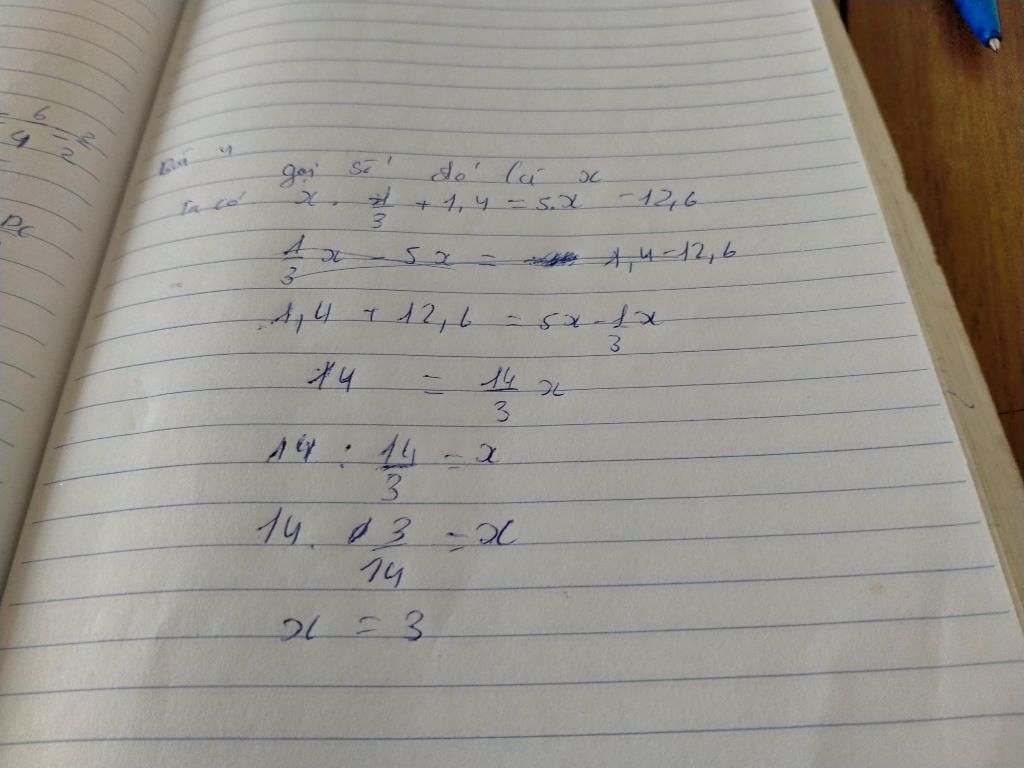 = 6/4 = 3/2
Bài 4
gọi số đó là x
Ta có x . 1/3 + 1,4 = 5.x - 12,6
1/3 x - 5x = 1,4 - 12,6
1,4 + 12,6 = 5x - 1/3 x
14 = 14/3 x
14 : 14/3 = x
14 . 3/14 = x
x = 3